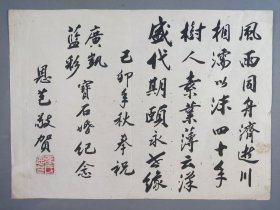 風雨同舟濟逝川
相濡以沫四十年
樹人素業薄云漢
盛代期頤永芳緣
己卯年秋奉祝
廣凱 寶石婚紀念
藍彩
恩芑敬賀